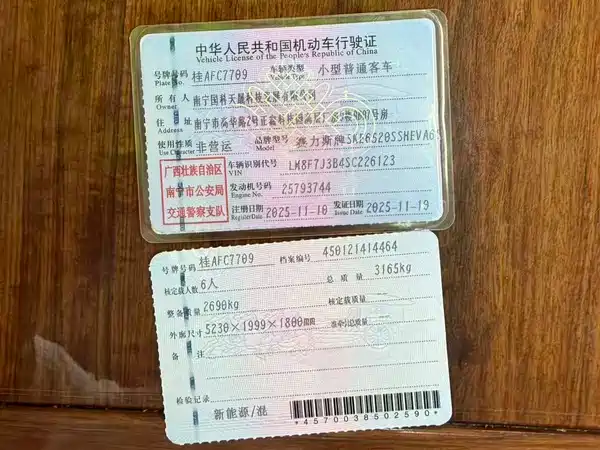 中华人民共和国机动车行驶证
Vehicle License of the People's Republic of China
号牌号码 桂AFC7709 车辆类型 小型普通客车
Plate No. Vehicle Type
所有人 南宁国科天晟科技发展有限公司
Owner
住址 南宁市高华路2号正鑫科技园
Address
使用性质 非营运 品牌型号 赛力斯牌SKE6520SSHEVA6
Use Character Model
广西壮族自治区
南宁市公安局
交通警察支队
车辆识别代号 LM8F7J3B4SC226123
VIN
发动机号码 25793744
Engine No.
注册日期 2025-11-10 发证日期 2025-11-19
Register Date Issue Date
号牌号码 桂AFC7709 档案编号 450121414464
核定载人数 6人 总质量 3165kg
整备质量 2690kg 核定载质量
外廓尺寸 5230×1999×1800 准牵引总质量
备注
检验记录
新能源/混
*4570038502590*